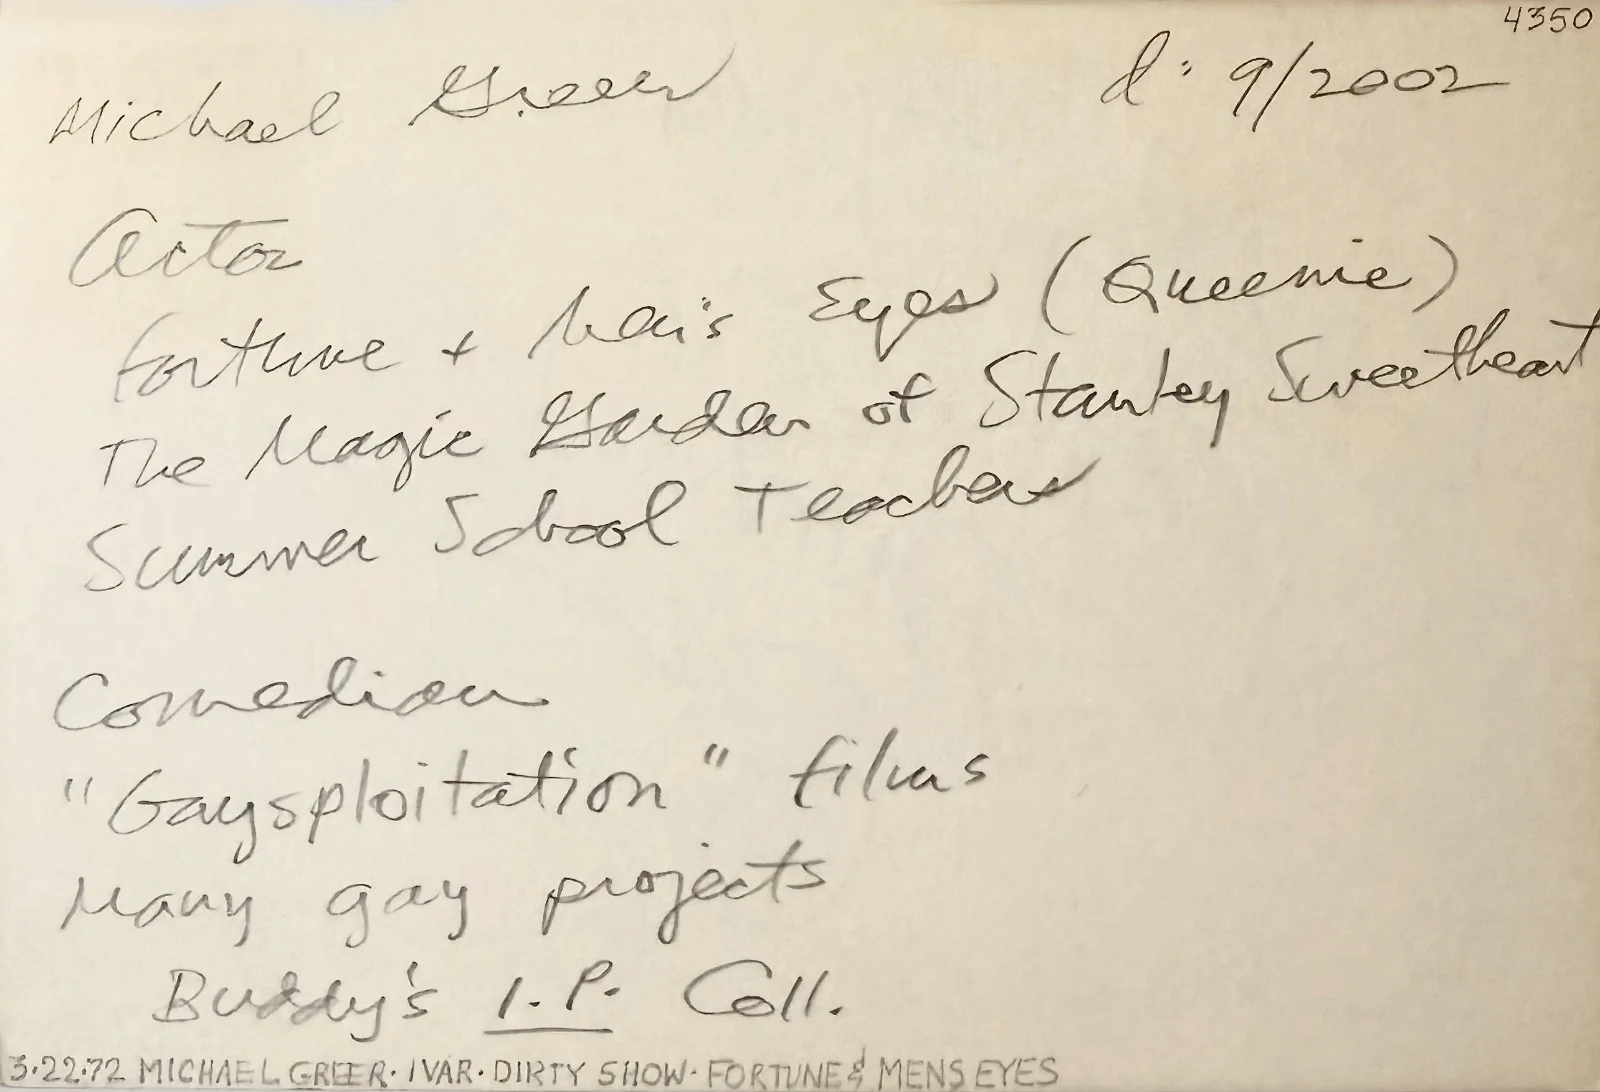 4350
Michael Greer d: 9/2002
Actor
Fortune + Men's Eyes (Queenie)
The Magic Garden of Stanley Sweetheart
Summer School Teachers
Comedian
"Gaysploitation" films
Many gay projects
Buddy's I.P. Coll.
3.22.72 MICHAEL GREER. IVAR. DIRTY SHOW. FORTUNE & MENS EYES